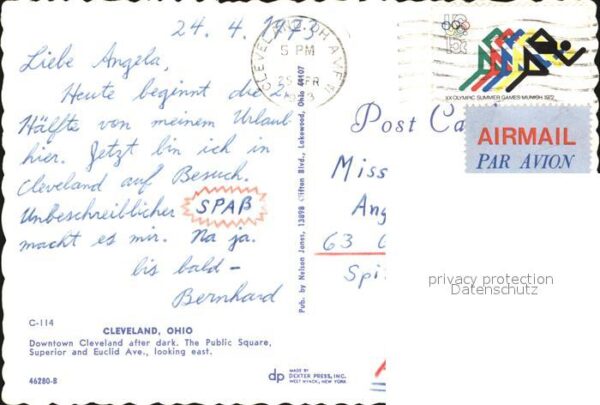 24. 4. 1973
Liebe Angela,
Heute beginnt die 2.
Hälfte von meinem Urlaub
hier. Jetzt bin ich in
Cleveland auf Besuch.
Unbeschreiblicher SPAß
macht es mir. Na ja.
bis bald –
Bernhard
C-114
CLEVELAND, OHIO
Downtown Cleveland after dark. The Public Square,
Superior and Euclid Ave., looking east.
46280-B
dp MADE BY
DEXTER PRESS, INC.
WEST NYACK, NEW YORK
Pub. by Nelson Jones, 13898 Clifton Blvd., Lakewood, Ohio 44107
CLEVELAND, OH
5 PM
US
XX OLYMPIC SUMMER GAMES MUNICH 1972
AIRMAIL
PAR AVION
Post
Miss
Ang
63
Spi
privacy protection
Datenschutz